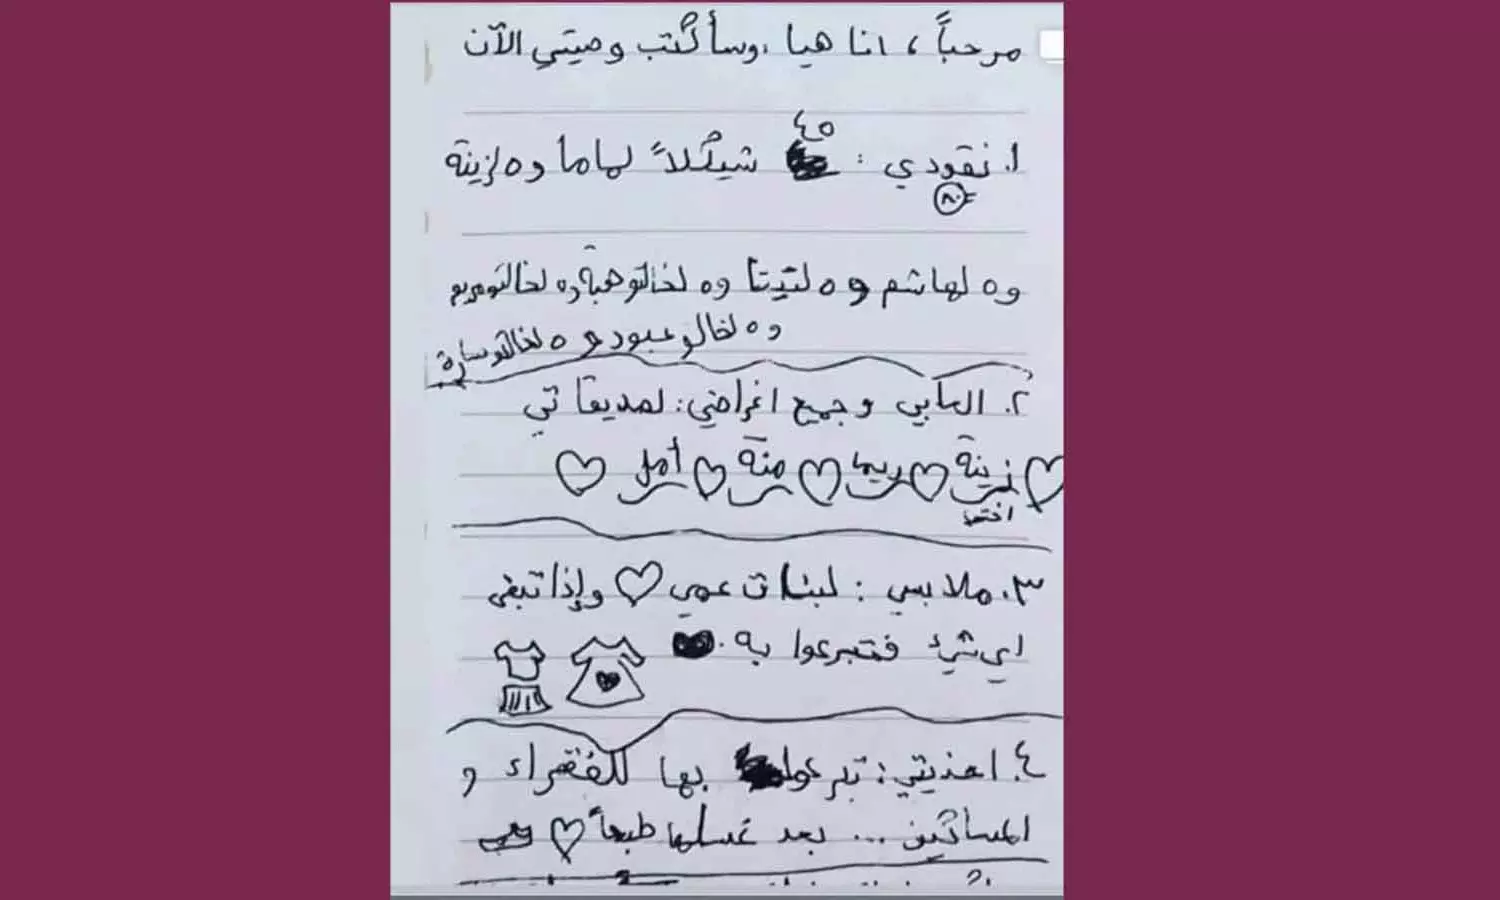 مرحباً، انا هيا، وسأكتب وصيتي الآن
٤٥
١. نقودي : شيكلاً لماما و ٥ لزينة
٨٠
و ٥ لهاشم و ٥ لتيتا و ٥ لخالتو هبة و ٥ لخالتو مريم
و ٥ لخالو عبود و ٥ لخالتو سارة
٢. العابي وجميع اغراضي: لصديقاتي
زينة ريما منة أمل
اختي
٣. ملابسي : لبنات عمي وإذا تبقى
اي شيء فتبرعوا به.
٤. احذيتي: تبرعوا بها للفقراء و
المساكين ... بعد غسلها طبعاً